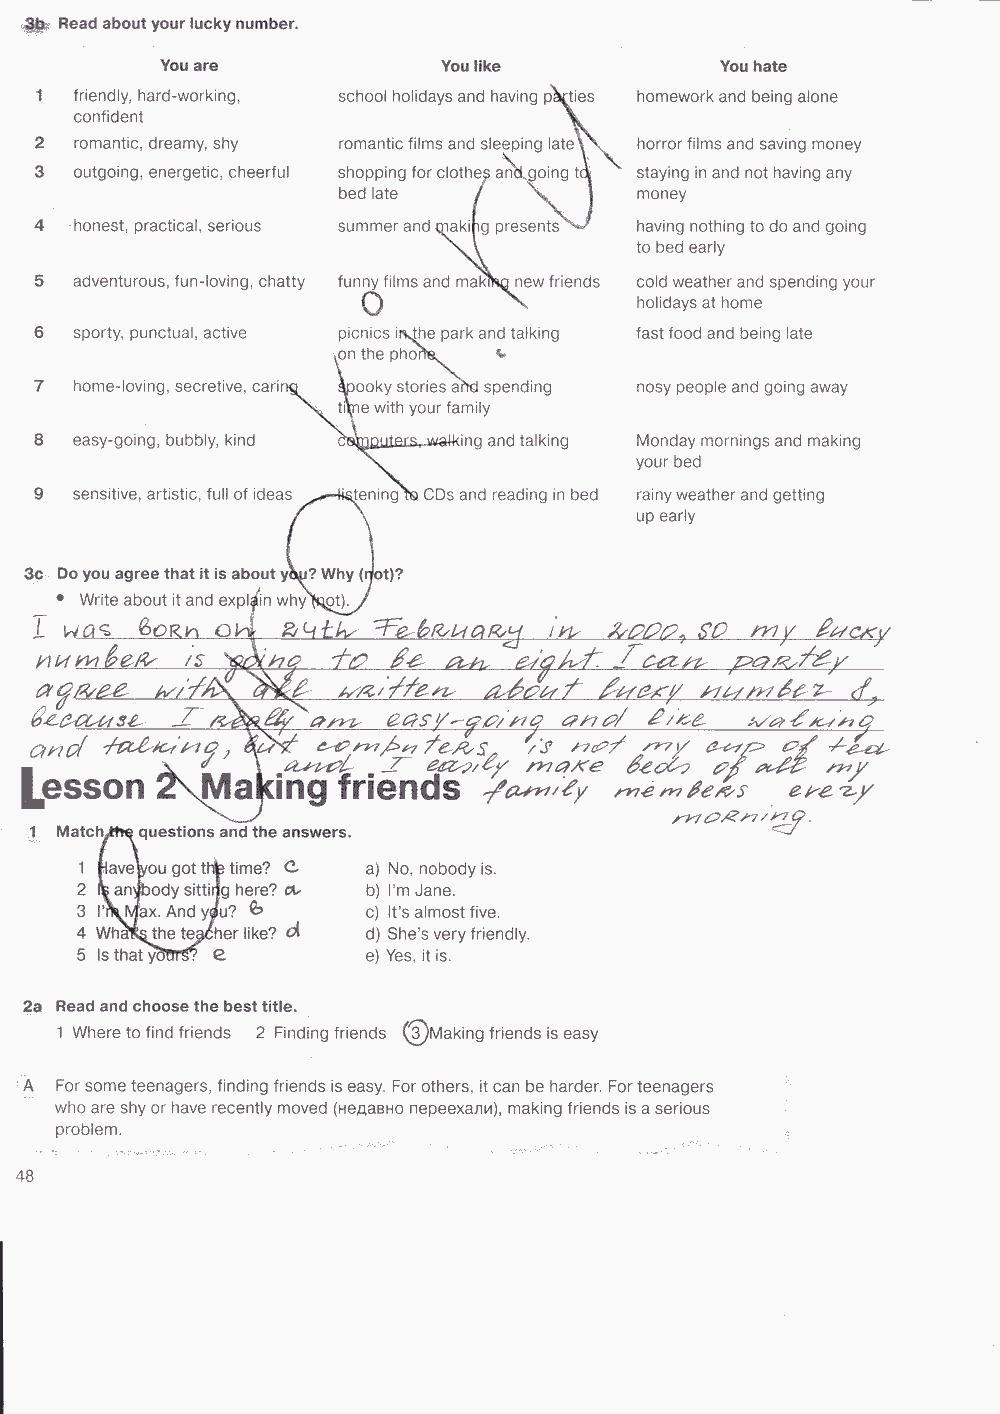 3b Read about your lucky number.
You are You like You hate
1 friendly, hard-working, school holidays and having parties homework and being alone
confident
2 romantic, dreamy, shy romantic films and sleeping late horror films and saving money
3 outgoing, energetic, cheerful shopping for clothes and going to staying in and not having any
bed late money
4 honest, practical, serious summer and making presents having nothing to do and going
to bed early
5 adventurous, fun-loving, chatty funny films and making new friends cold weather and spending your
holidays at home
6 sporty, punctual, active picnics in the park and talking fast food and being late
on the phone
7 home-loving, secretive, caring spooky stories and spending nosy people and going away
time with your family
8 easy-going, bubbly, kind computers, walking and talking Monday mornings and making
your bed
9 sensitive, artistic, full of ideas listening to CDs and reading in bed rainy weather and getting
up early
3c Do you agree that it is about you? Why (not)?
• Write about it and explain why (not).
I was born on 24th February in 2000, so my lucky
number is going to be an eight. I can partly
agree with all written about lucky number 8,
because I really am easy-going and like walking
and talking, but computers is not my cup of tea
and I easily make beds of all my
Lesson 2 Making friends family members every
morning.
1 Match the questions and the answers.
1 Have you got the time? c a) No, nobody is.
2 Is anybody sitting here? a b) I'm Jane.
3 I'm Max. And you? b c) It's almost five.
4 What's the teacher like? d d) She's very friendly.
5 Is that yours? e e) Yes, it is.
2a Read and choose the best title.
1 Where to find friends 2 Finding friends 3 Making friends is easy
A For some teenagers, finding friends is easy. For others, it can be harder. For teenagers
who are shy or have recently moved (недавно переехали), making friends is a serious
problem.
48